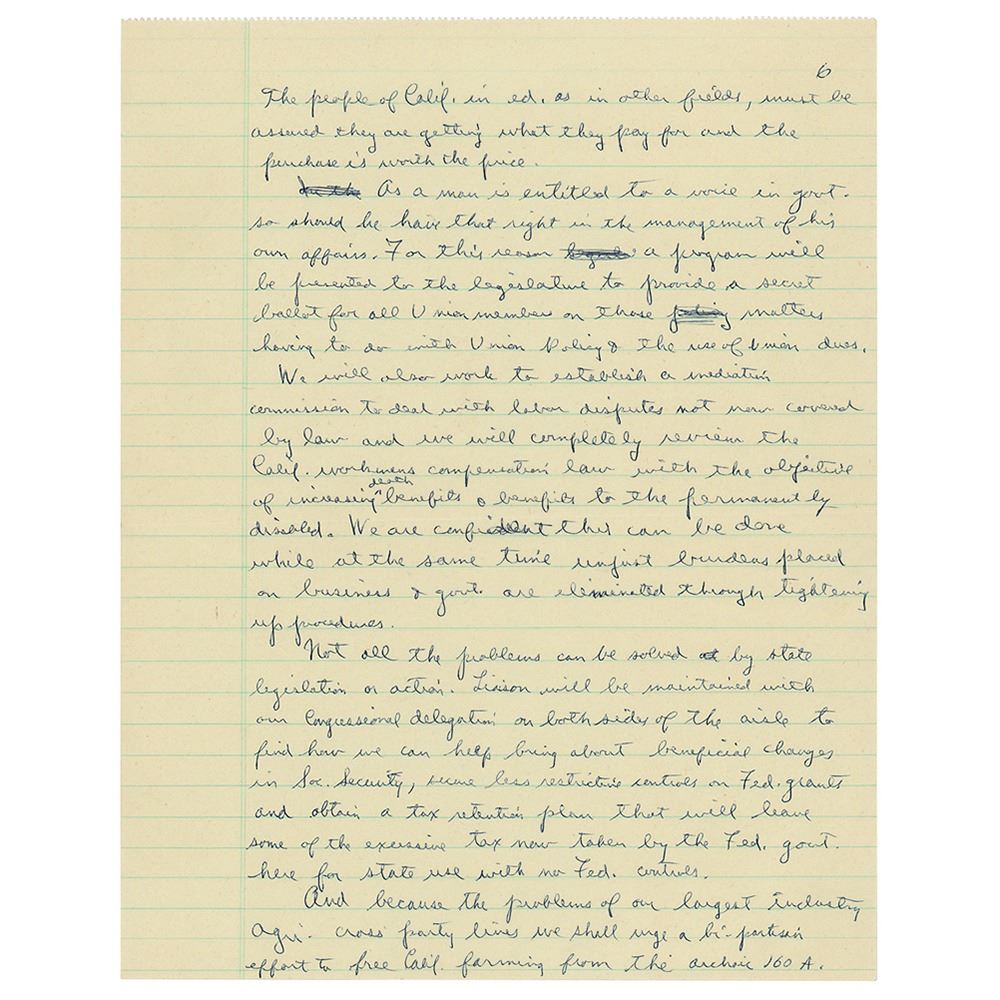 6
The people of Calif. in ed. as in other fields, must be
assured they are getting what they pay for and the
purchase is worth the price.
As a man is entitled to a voice in govt.
so should he have that right in the management of his
own affairs. For this reason a program will
be presented to the legislature to provide a secret
ballot for all Union members on those policy matters
having to do with Union Policy & the use of Union dues.
We will also work to establish a mediation
commission to deal with labor disputes not now covered
by law and we will completely review the
Calif. workmens compensation law with the objective
death
of increasing ^ benefits & benefits to the permanently
disabled. We are confident this can be done
while at the same time unjust burdens placed
on business & govt. are eliminated through tightening
up procedures.
Not all the problems can be solved at by state
legislation or action. Liaison will be maintained with
our Congressional delegation on both sides of the aisle to
find how we can help bring about beneficial changes
in Soc. Security, secure less restrictive controls on Fed. grants
and obtain a tax retention plan that will leave
some of the excessive tax now taken by the Fed. govt.
here for state use with no Fed. controls.
And because the problems of our largest industry
Agri. cross party lines we shall urge a bi-partisan
effort to free Calif. farming from the archaic 160 A.